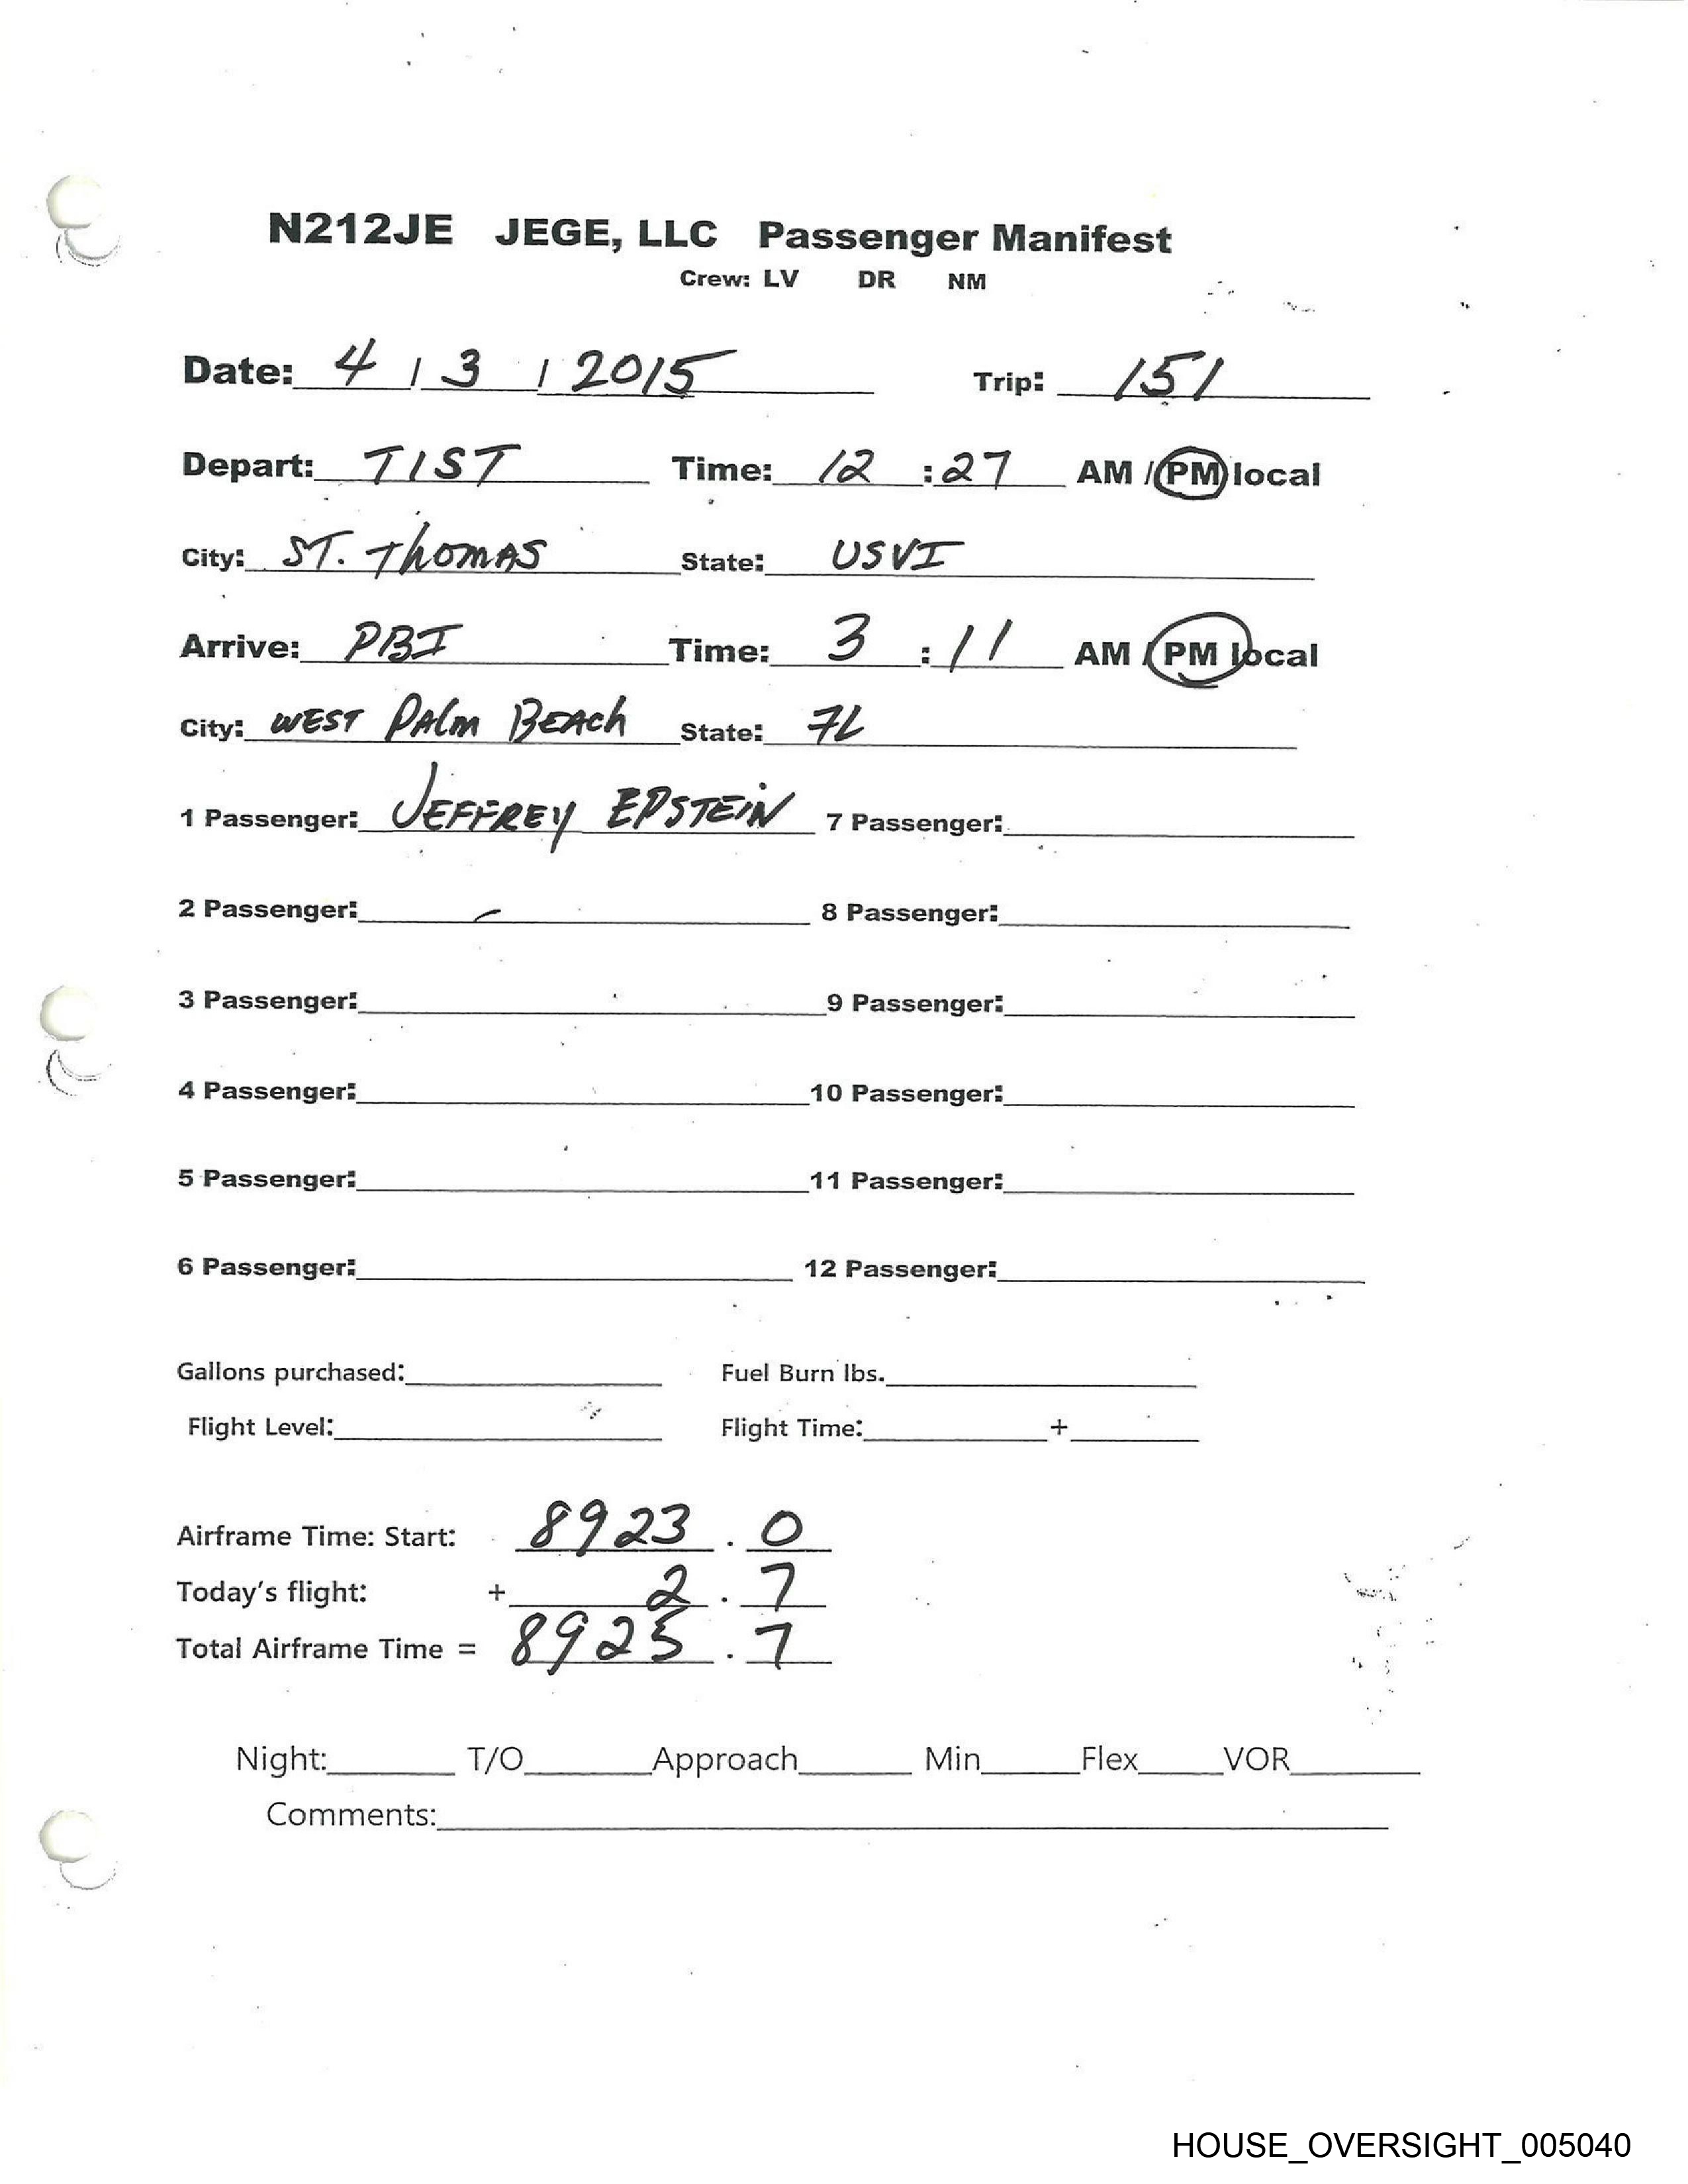 N212JE JEGE, LLC Passenger Manifest
Crew: LV DR NM
Date: 4 / 3 / 2015 Trip: 151
Depart: TIST Time: 12 :27 AM / PM local
City: ST. ThomAS State: USVI
Arrive: PBI Time: 3 : 11 AM / PM local
City: WEST PAlm BEAch State: FL
1 Passenger: JEFFREY EPSTEiN 7 Passenger:
2 Passenger: 8 Passenger:
3 Passenger: 9 Passenger:
4 Passenger: 10 Passenger:
5 Passenger: 11 Passenger:
6 Passenger: 12 Passenger:
Gallons purchased: Fuel Burn lbs.
Flight Level: Flight Time: +
Airframe Time: Start: 8923 . 0
Today's flight: + 2 . 7
Total Airframe Time = 8925 . 7
Night: T/O Approach Min Flex VOR
Comments:
HOUSE_OVERSIGHT_005040